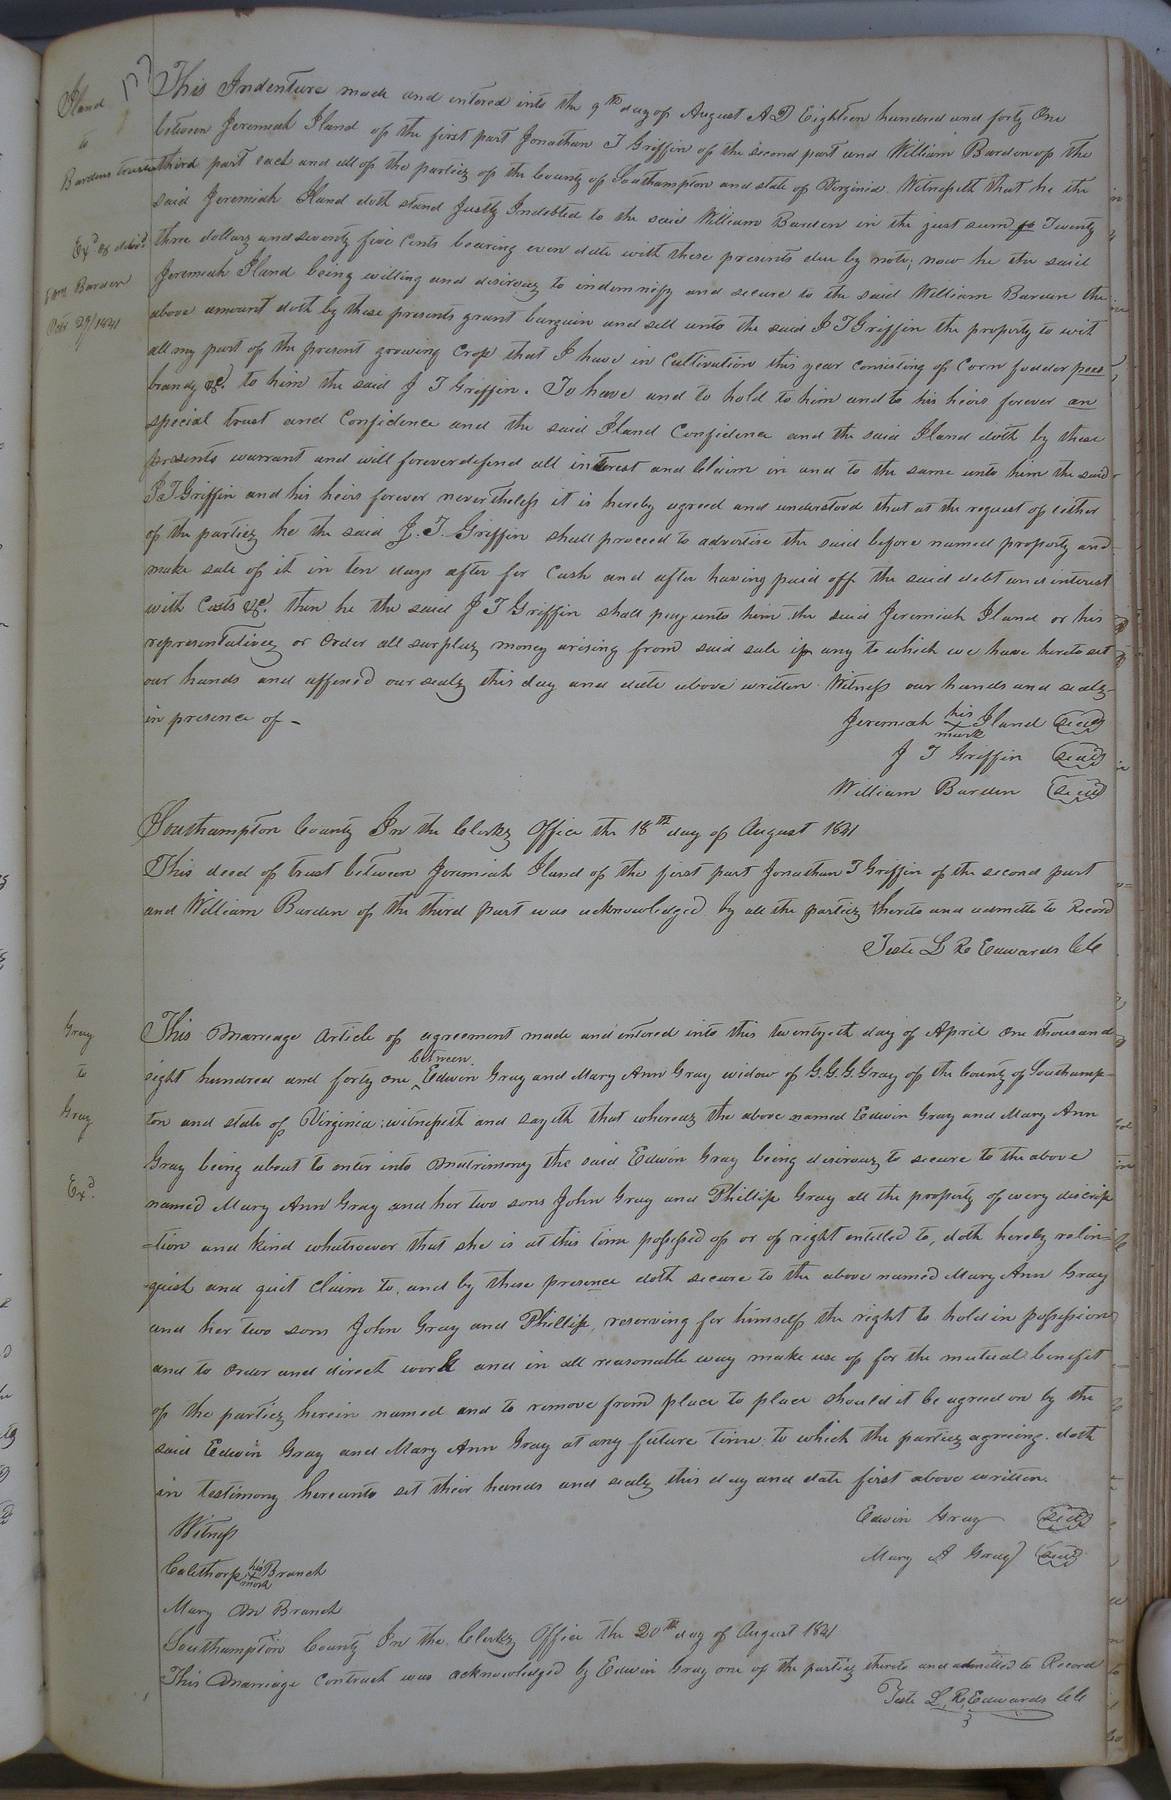 177
Iland
to
Bardens trustee
Exd & delivd
Wm Barden
Octr 29/1841
This Indenture made and entered into the 9th day of August A D Eighteen hundred and forty One
between Jeremiah Iland of the first part Jonathan T Griffin of the second part and William Barden of the
third part each and all of the parties of the County of Southampton and state of Virginia Witnesseth that he the
said Jeremiah Iland doth stand Justly Indebted to the said William Barden in the just sum fo Twenty
three dollars and seventy five Cents bearing even date with these presents due by note; now he the said
Jeremiah Iland being willing and desirous to indemnify and secure to the said William Barden the
above amount doth by these presents grant bargain and sell unto the said J T Griffin the property to wit
all my part of the present growing Crop that I have in Cultivation this year consisting of Corn fodder peas
brandy &c. to him the said J T Griffin. To have and to hold to him and to his heirs forever an
special trust and Confidence and the said Iland Confidence and the said Iland doth by these
presents warrant and will forever defend all interest and Claim in and to the same unto him the said
J T Griffin and his heirs forever nevertheless it is hereby agreed and understood that at the request of either
of the parties he the said J. T. Griffin shall proceed to advertise the said before named property and
make sale of it in ten days after for Cash and after having paid off the said debt and interest
with Costs &c. then he the said J T Griffin shall pay unto him the said Jeremiah Iland or his
representatives or Order all surplus money arising from said sale if any to which we have hereto set
our hands and affixed our seals this day and date above written Witness our hands and seals
in presence of –
Jeremiah his Iland seal
mark
J T Griffin seal
William Barden seal
Southampton County In the Clerks Office the 18th day of August 1841
This deed of trust between Jeremiah Iland of the first part Jonathan T Griffin of the second part
and William Barden of the third part was acknowledged by all the parties thereto and admitte to Record
Teste L R Edwards Clk
Gray
to
Gray
Exd.
This Marriage article of agreement made and entered into this twentyeth day of April one thousand
eight hundred and forty one between Edwin Gray and Mary Ann Gray widow of G.G.G. Gray of the County of Southamp-
ton and state of Virginia; witnesseth and sayeth that whereas the above named Edwin Gray and Mary Ann
Gray being about to enter into Matrimony the said Edwin Gray being desirous to secure to the above
named Mary Ann Gray and her two sons John Gray and Phillip Gray all the property of every discrip
=tion and kind whatsoever that she is at this time possessed of or of right entitled to, doth hereby relin=
quish and quit Claim to, and by these presence doth secure to the above named Mary Ann Gray
and her two sons John Gray and Phillip, reserving for himself the right to hold in possession
and to order and direct work and in all reasonable way make use of for the mutual benefit
of the parties herein named and to remove from place to place should it be agreed on by the
said Edwin Gray and Mary Ann Gray at any future time; to which the parties agreeing doth
in testimony hereunto set their hands and seals this day and date first above written.
Edwin Gray seal
Mary A Gray seal
Witness
Calethorp his Branch
mark
Mary Ann Branch
Southampton County In the Clerks Office the 20th day of August 1841
This Marriage Contract was acknowledged by Edwin Gray one of the parties thereto and admitted to Record
Teste L. R. Edwards Clk